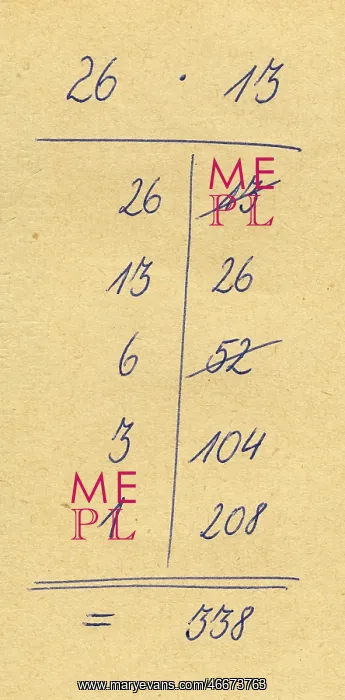 26 · 13
26 13
ME
PL
13 26
6 52
3 104
ME
PL
1 208
= 338
www.maryevans.com/46673763